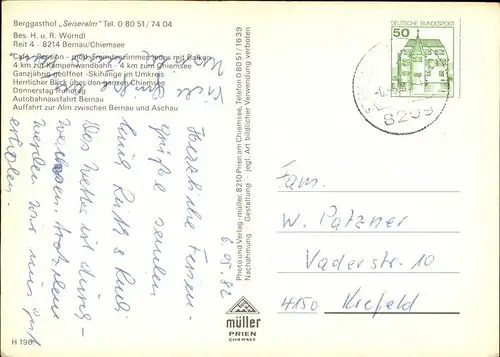 Berggasthof „Seiseralm" Tel. 0 80 51 / 74 04
Bes. H. u. R. Wörndl
Reit 4 - 8214 Bernau/Chiemsee
Cafe - Pension - große Fremdenzimmer jedes mit Balkon
4 km zur Kampenwandbahn - 4 km zum Chiemsee
Ganzjährig geöffnet - Skihänge im Umkreis
Herrlicher Blick über den ganzen Chiemsee
Donnerstag Ruhetag
Autobahnausfahrt Bernau
Auffahrt zur Alm zwischen Bernau und Aschau
Herzliche Ferien-
grüße senden
Ruth & Rudi
Das Wetter ist durch-
wachsen, trotzdem
werden wir uns gut
erholen.
6.05.82
Photo und Verlag · müller, 8210 Prien am Chiemsee, Telefon 0 80 51 / 16 39
Nachahmung jegl. Art bildlicher Verwendung verboten
Gestaltung
DEUTSCHE BUNDESPOST
50
8209
Fam.
W. Patzner
Vaderstr. 10
4150 Krefeld
müller
PRIEN
CHIEMSEE
H 196